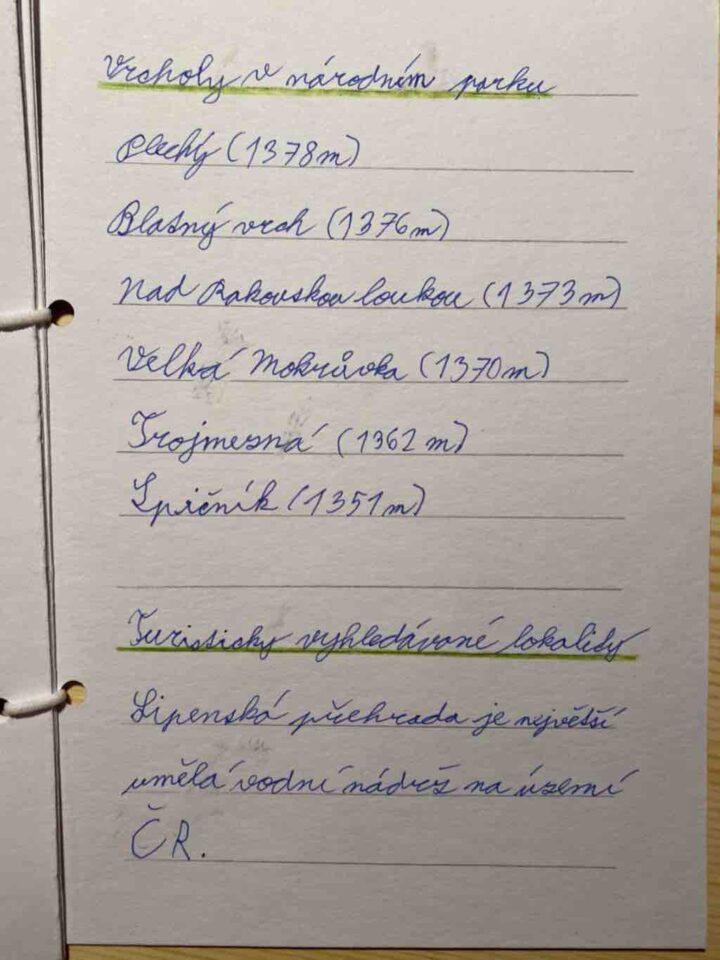 Vrcholy v národním parku
Plechý (1378m)
Blatný vrch (1376m)
Nad Rakovskou loukou (1373m)
Velká Mokrůvka (1370m)
Trojmezná (1362 m)
Špičník (1351m)
Turisticky vyhledávané lokality
Lipenská přehrada je největší
umělá vodní nádrž na území
ČR.